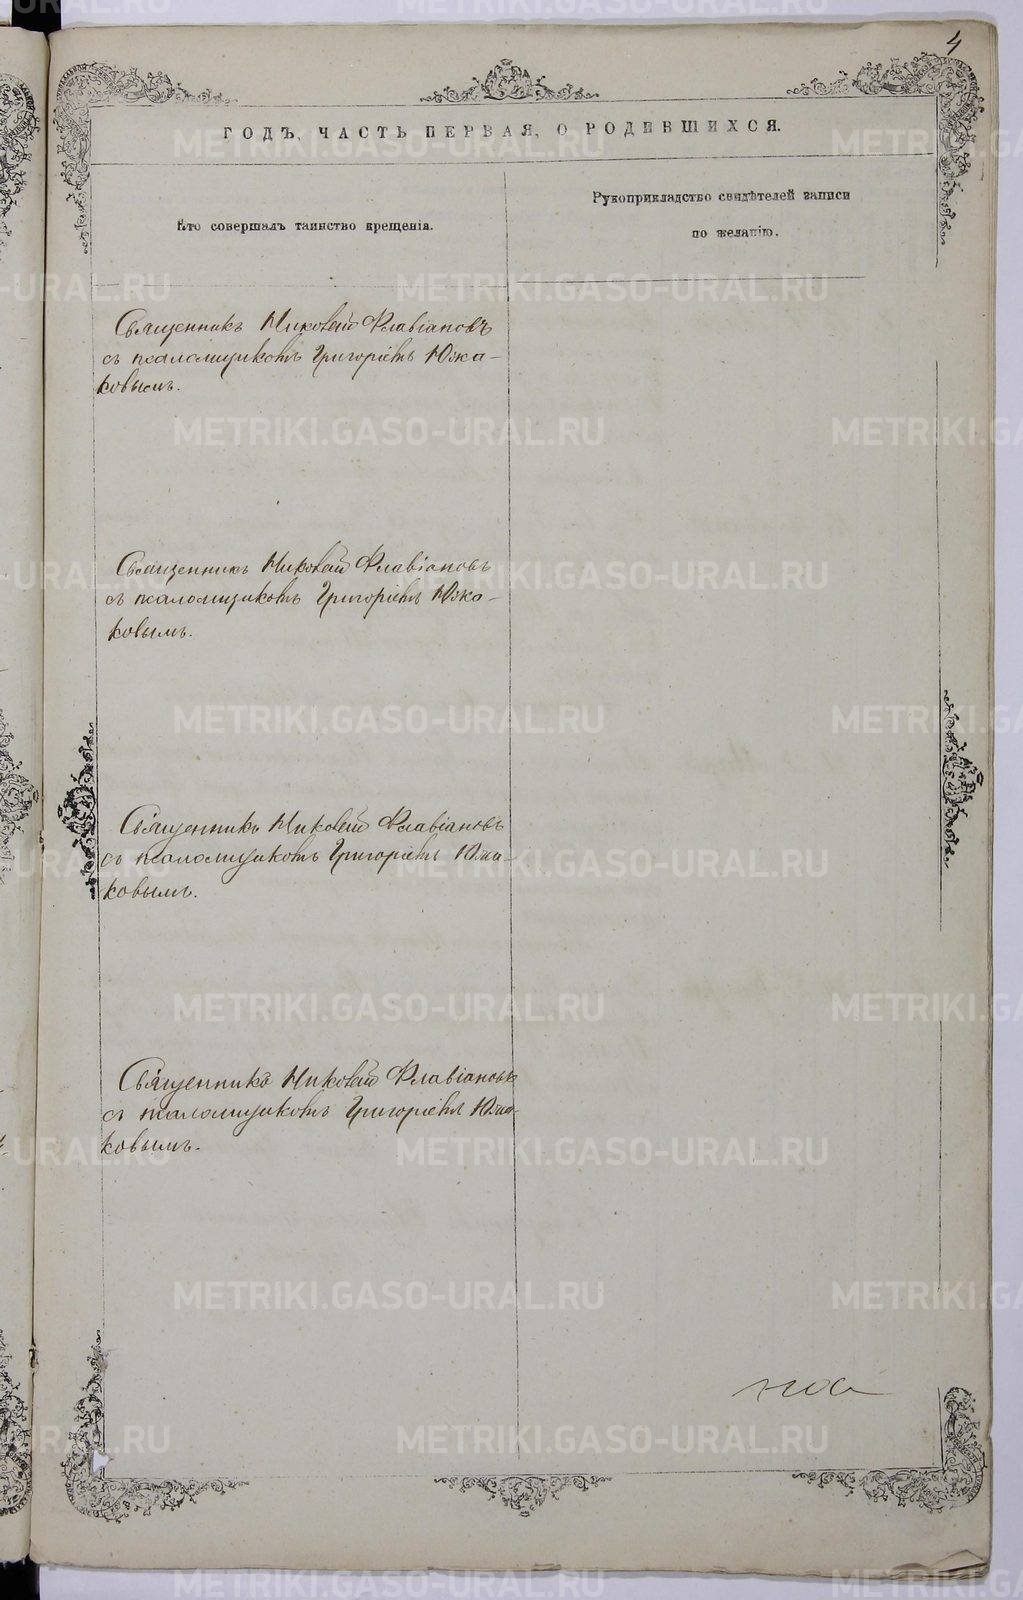 4
ГОДЪ, ЧАСТЬ ПЕРВАЯ, О РОДИВШИХСЯ.
Кто совершалъ таинство крещенія.
Рукоприкладство свидѣтелей записи
по желанію.
Священникъ Николай Флавіановъ
съ псаломщикомъ Григоріемъ Южа-
ковымъ.
Священникъ Николай Флавіановъ
съ псаломщикомъ Григоріемъ Южа-
ковымъ.
Священникъ Николай Флавіановъ
съ псаломщикомъ Григоріемъ Южа-
ковымъ.
Священникъ Николай Флавіановъ
съ псаломщикомъ Григоріемъ Южа-
ковымъ.
METRIKI.GASO-URAL.RU